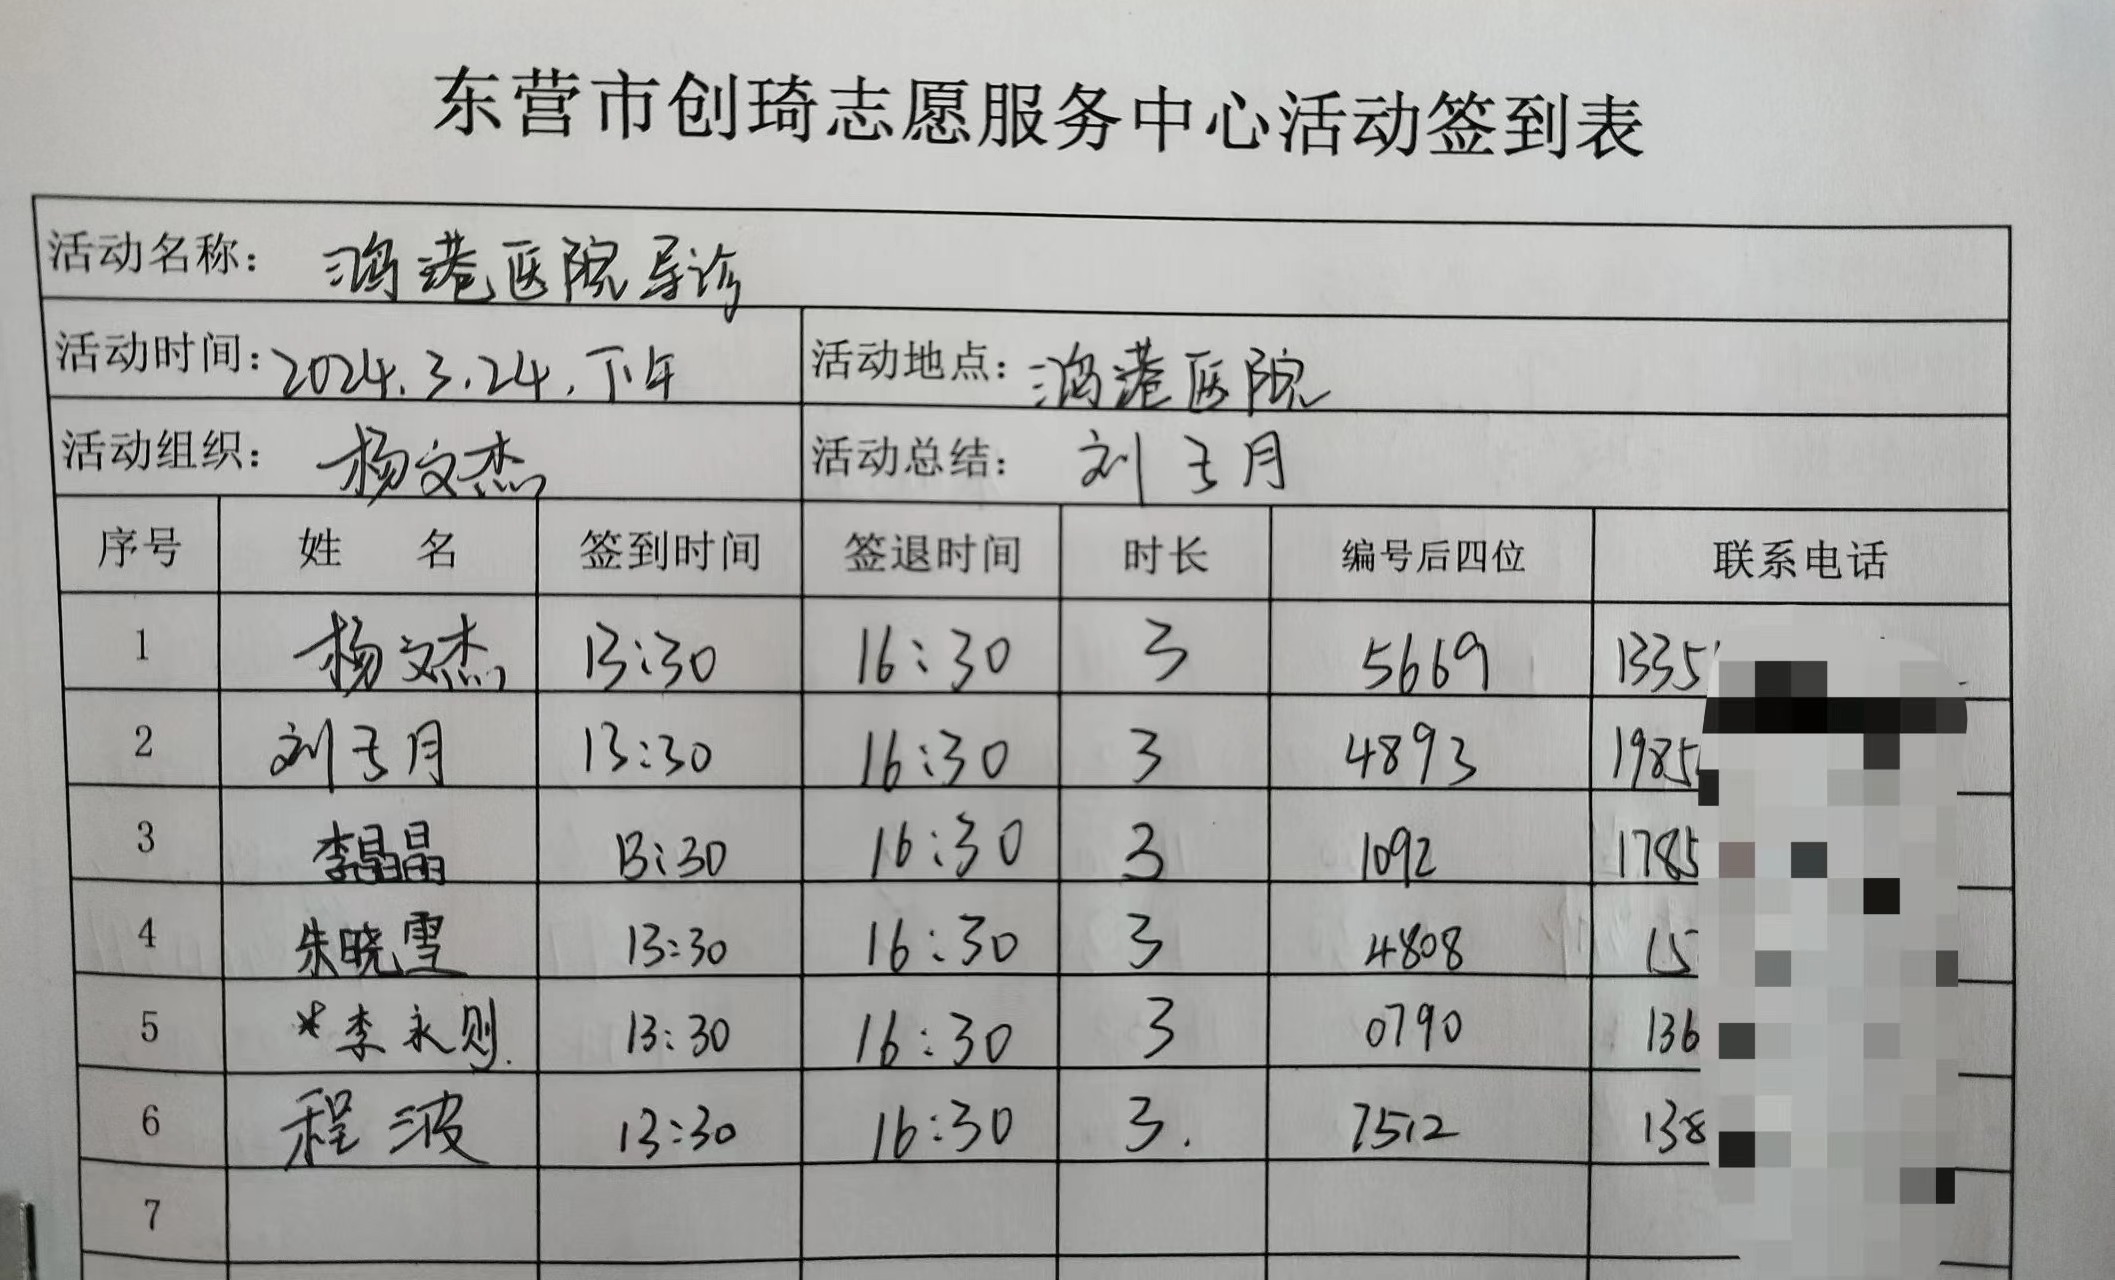 东营市创琦志愿服务中心活动签到表
活动名称: 鸿港医院导诊
活动时间: 2024.3.24.下午 活动地点: 鸿港医院
活动组织: 杨文杰 活动总结: 刘于月
序号 姓 名 签到时间 签退时间 时长 编号后四位 联系电话
1 杨文杰 13:30 16:30 3 5669 1335
2 刘于月 13:30 16:30 3 4893 1985
3 李晶晶 13:30 16:30 3 1092 1785
4 朱晓雪 13:30 16:30 3 4808 15
5 *李永则. 13:30 16:30 3 0790 136
6 程波 13:30 16:30 3. 7512 138
7